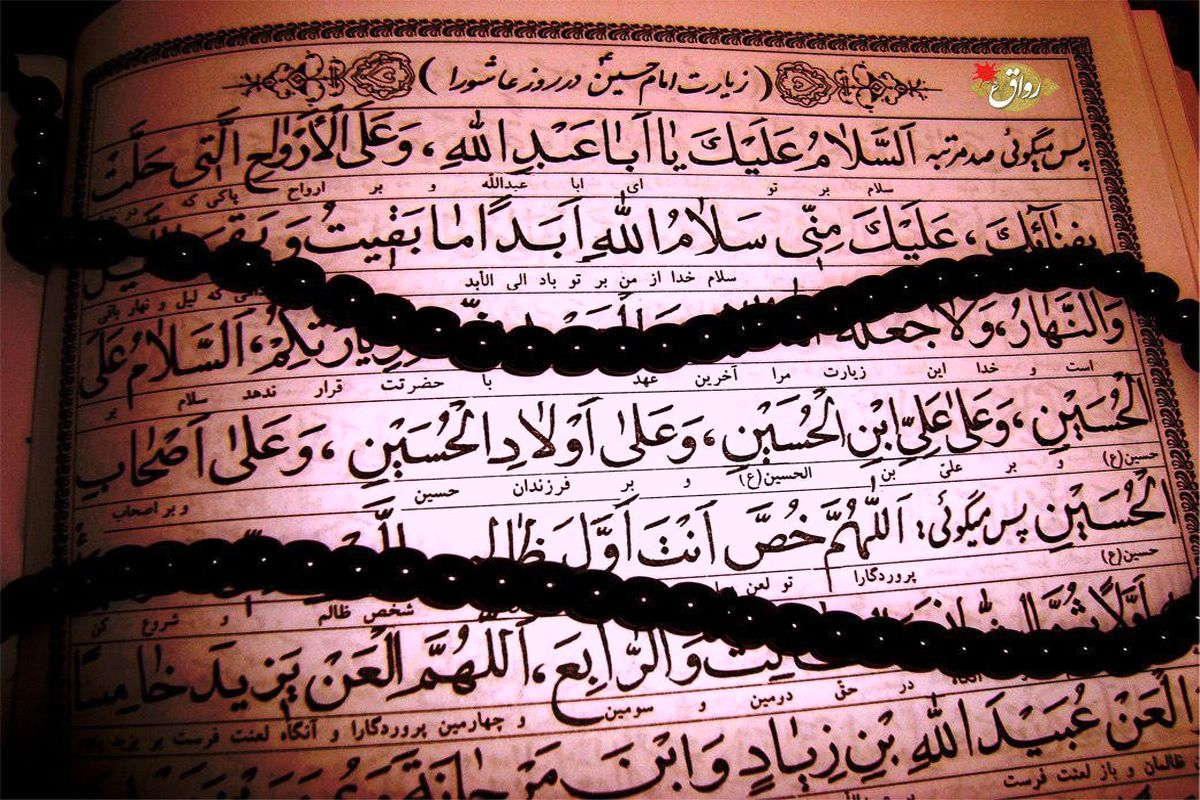 رواق
(زیارت امام حسین ع در روز عاشورا)
پس میگوئی صد مرتبه اَلسَّلامُ عَلَيْكَ يٰا اَبٰا عَبْدِ اللّٰهِ ، وَعَلَى الْأَرْوٰاحِ الَّتِي حَلَّتْ
سلام بر تو ای ابا عبدالله و بر ارواح پاکی که در
بِفِنٰائِكَ ، عَلَيْكَ مِنّي سَلامُ اللّٰهِ اَبَداً مٰا بَقيتُ وَ بَقِيَ
سلام خدا از من بر تو باد الی الأبد که لیل و نهار باقی
وَالنَّهٰارُ، وَلاٰ جَعَلَهُ زِيٰارَتِكُمْ، اَلسَّلامُ عَلَى
است و خدا این زیارت مرا آخرین عهد با حضرتت قرار ندهد سلام بر
الْحُسَيْنِ ، وَعَلىٰ عَلِيِّ ابْنِ الْحُسَيْنِ ، وَعَلىٰ اَوْلاٰدِ الْحُسَيْنِ ، وَعَلىٰ اَصْحٰابِ
حسین(ع) و بر علیّ بن الحسین(ع) و بر فرزندان حسین و بر اصحاب
الْحُسَيْنِ پس میگوئی: اَللّٰهُمَّ خُصَّ اَنْتَ اَوَّلَ ظٰالِمٍ
حسین(ع) پروردگارا تو لعن
اَوَّلاً ثُمَّ وَالرّٰابِعَ، اَللّٰهُمَّ الْعَنْ يَزيدَ خٰامِساً
شخص ظالم و شروع کن
در حقّ دومین و سومین و چهارمین پروردگارا و آنگاه لعنت فرست بر یزید پنجم
الْعَنْ عُبَيْدَ اللّٰهِ بْنَ زِيٰادٍ وَ ابْنَ مَرْجٰانَةَ
ظالمان و باز لعنت فرست